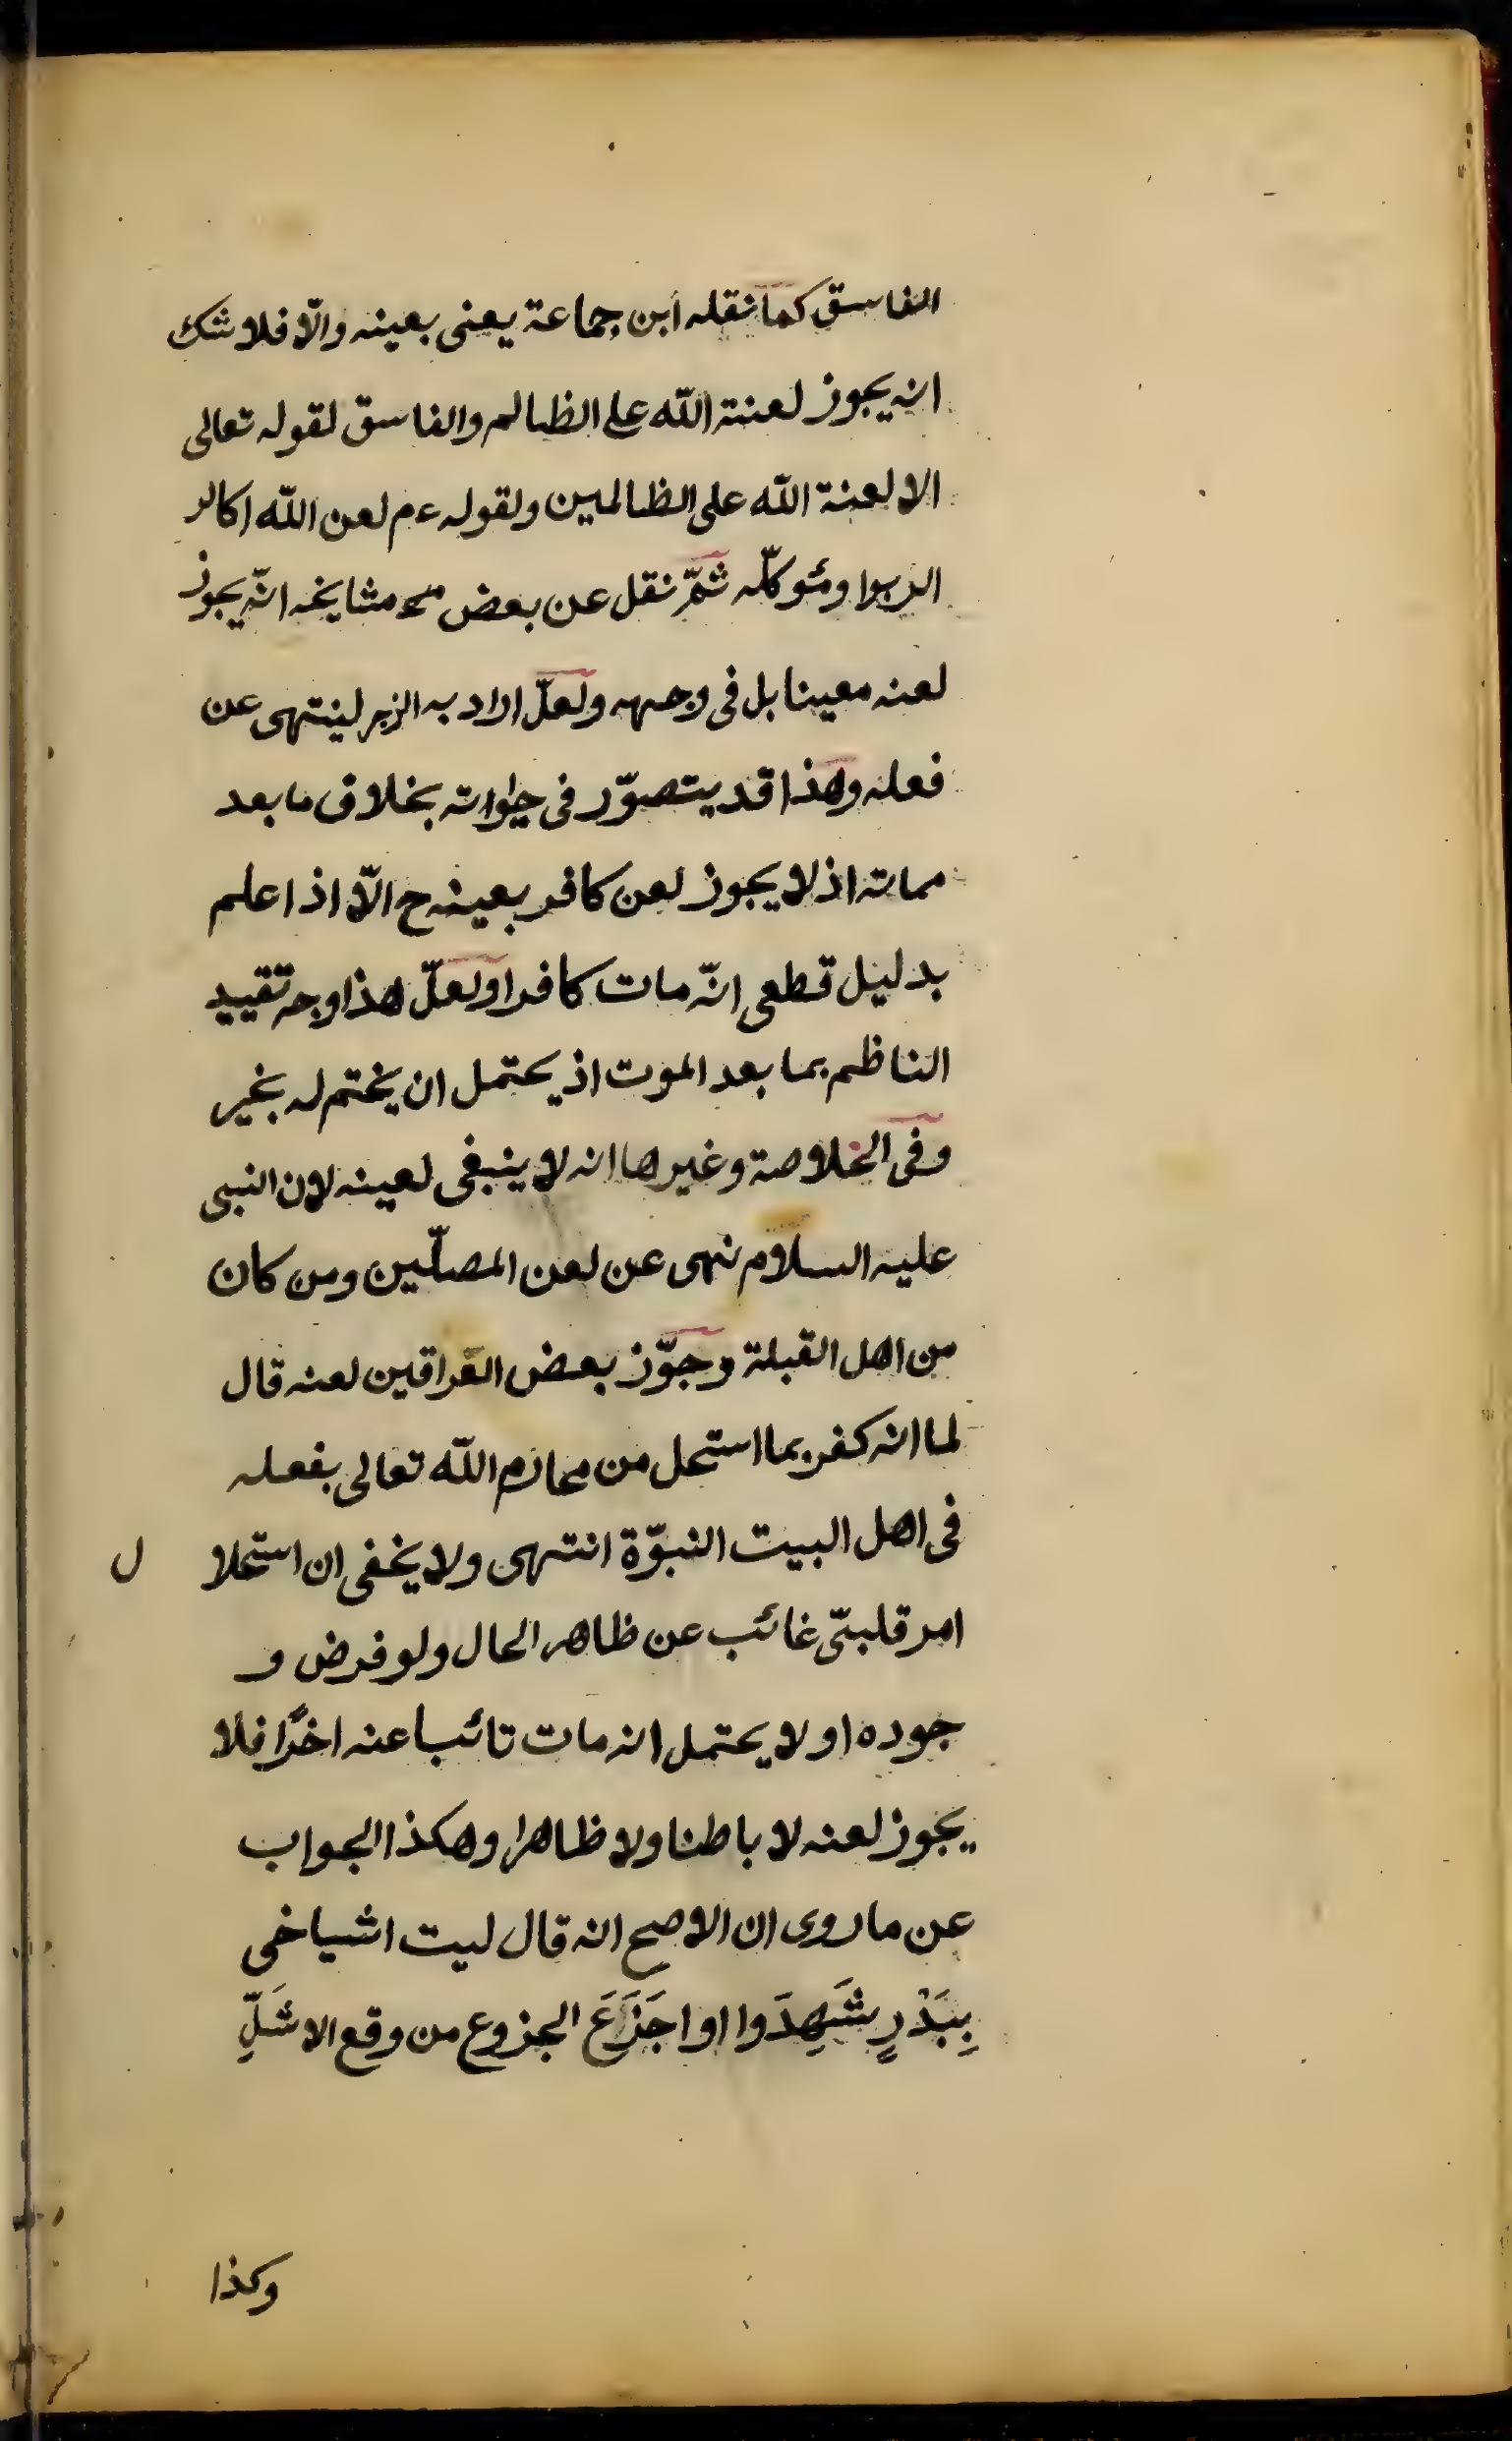 الفاسق كما نقله ابن جماعة يعنى بعينه والّا فلا شك
انه يجوز لعنة الله على الظالم والفاسق لقوله تعالى
الا لعنة الله على الظالمين ولقوله ءم لعن الله اكال
الربوا ومئوكلّه ثمّ نقل عن بعض مشايخه انّه يجوز
لعنه معينا بل فى وجهه ولعلّ اراد به الزجر لينتهى عن
فعله وهذا قد يتصوّر فى حيواته بخلاف ما بعد
مماته اذ لا يجوز لعن كافر بعينه ح الّا اذا علم
بدليل قطعى انّه مات كافرا ولعلّ هذا وجه تقييد
الناظم بما بعد الموت اذ يحتمل ان يختم له بخير
وفى الخلاصة وغيرها انه لا ينبغى لعينه لان النبى
عليه السلام نهى عن لعن المصلّين ومن كان
من اهل القبلة وجوّز بعض العراقين لعنه قال
لما انه كفر بما استحل من محارم الله تعالى بفعله
فى اهل البيت النبوّة انتهى ولا يخفى ان استحلا ل
امر قلبىّ غائب عن ظاهر الحال ولو فرض و
جوده او لا يحتمل انه مات تائبا عنه اخرًا فلا
يجوز لعنه لا باطنا ولا ظاهرا وهكذا الجواب
عن ما روى ان الاصح انه قال ليت اشياخى
بِبَدْرٍ شَهِدَوا اوا جَزَعَ الجزوع من وقع الاشَلِّ
وكذا